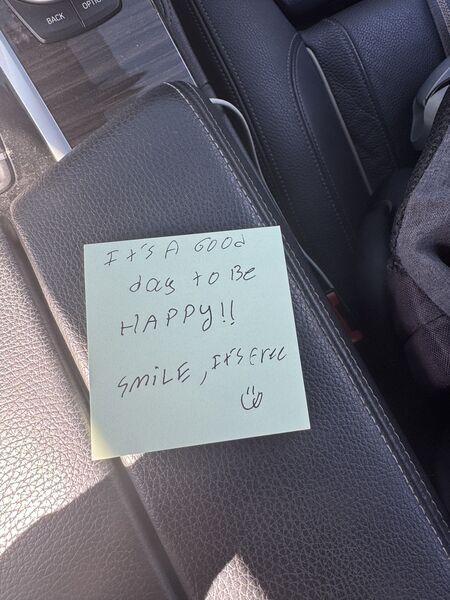 BACK
OPTIO
It's A Good
day to Be
HAPPY!!
SMiLE, It's